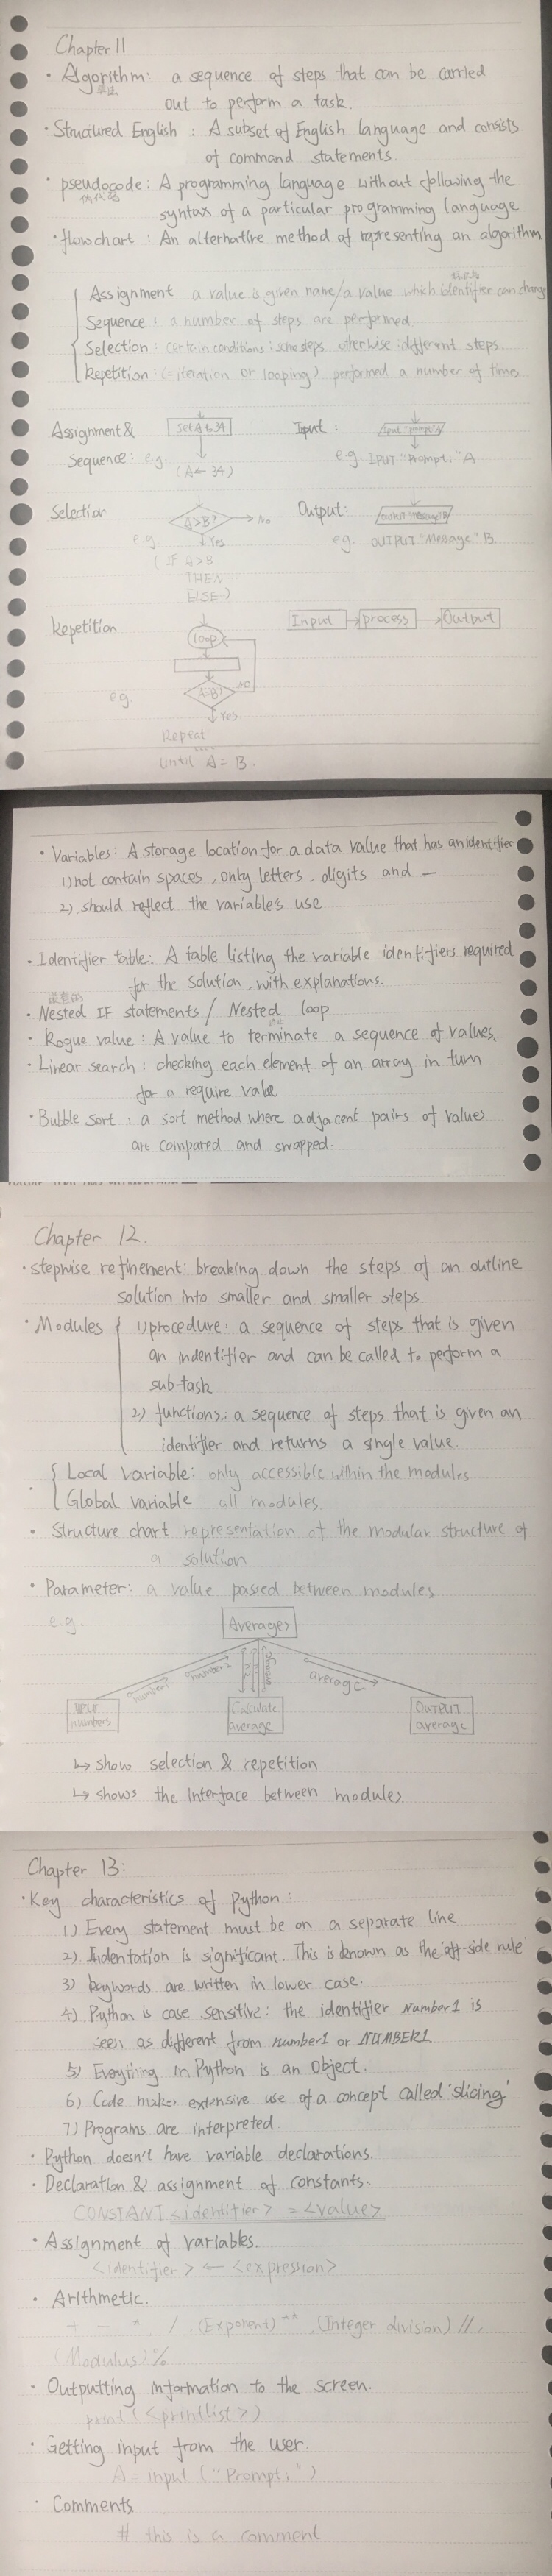 Chapter 11
· Algorithm: a sequence of steps that can be carried
算法
out to perform a task.
· Structured English : A subset of English language and consists
of command statements.
· pseudocode: A programming language without following the
伪代码
syntax of a particular programming language
· flowchart : An alternative method of representing an algorithm
Assignment a value is given name/a value which identifier can change
Sequence : a number of steps are performed
Selection : certain conditions : some steps otherwise different steps.
Repetition : (=iteration or looping) performed a number of times
Assignment &
Sequence: e.g
Set A to 34
(A← 34)
Input :
Input "Prompt: " A
e.g. IPUT "Prompt: " A
Selection
A>B?
No
Yes
e.g
( IF A>B
THEN
ELSE )
Output:
e.g. OUTPUT "Message" B.
Repetition
loop
A=B?
NO
Yes.
e.g.
Repeat
....
Until A = B.
Input → process → Output
· Variables: A storage location for a data value that has an identifier
1) not contain spaces , only letters . digits and —
2) should reflect the variable's use
· Identifier table: A table listing the variable identifiers required
for the solution, with explanations.
嵌套的
· Nested IF statements / Nested loop
· Rogue value : A value to terminate a sequence of values.
终止
· Linear search : checking each element of an array in turn
for a require value
· Bubble sort : a sort method where adjacent pairs of values
are compared and swapped.
Chapter 12.
· stepwise refinement: breaking down the steps of an outline
solution into smaller and smaller steps.
· Modules { 1) procedure : a sequence of steps that is given
an indentifier and can be called to perform a
sub-task
2) functions : a sequence of steps that is given an
identifier and returns a single value.
· { Local variable: only accessible within the modules
Global variable all modules
· Structure chart representation of the modular structure of
a solution
· Parameter: a value passed between modules
e.g.
Averages
number1
number2
average
INPUT numbers
Calculate average
OUTPUT average
↳ show selection & repetition
↳ shows the Interface between modules.
Chapter 13:
· Key characteristics of Python :
1) Every statement must be on a separate line
2) Indentation is significant. This is known as the 'off-side rule'
3) keywords are written in lower case.
4) Python is case sensitive: the identifier Number1 is
seen as different from number1 or NUMBER1
5) Everything in Python is an Object.
6) Code makes extensive use of a concept called 'slicing'
7) Programs are interpreted.
· Python doesn't have variable declarations.
· Declaration & assignment of constants.
CONSTANT <identifier> = <value>
· Assignment of variables.
<identifier> ← <expression>
· Arithmetic.
+ - * / (Exponent) ** , (Integer division) // ,
(Modulus) %
· Outputting information to the screen.
print ( <printlist> )
· Getting input from the user.
A = input ( "Prompt: " )
· Comments
# this is a comment